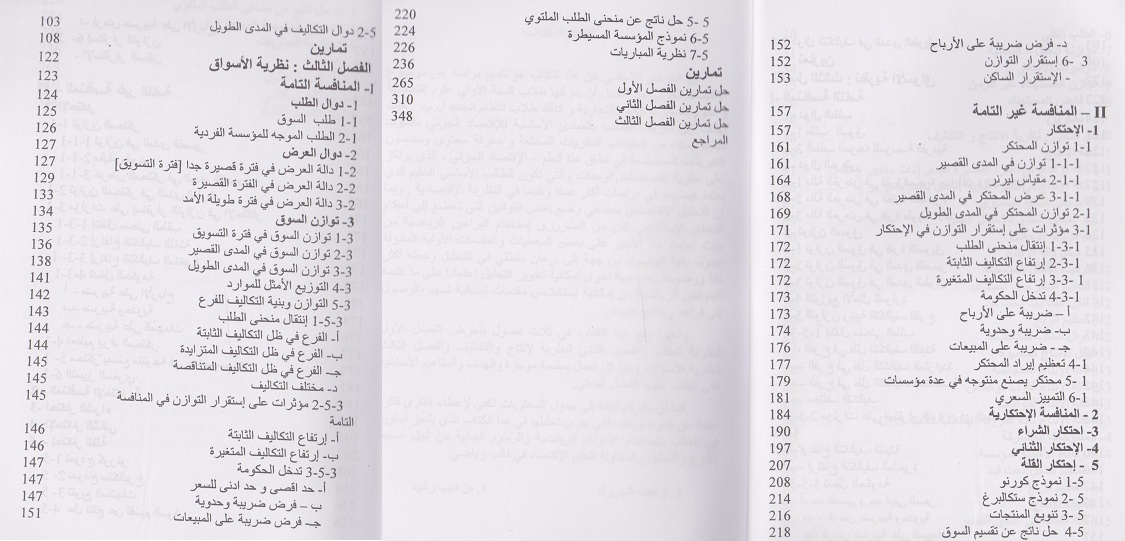 2-5 دوال التكاليف في المدى الطويل 103
تمارين 108
الفصل الثالث : نظرية الأسواق 122
I- المنافسة التامة 123
1- دوال الطلب 124
1-1 طلب السوق 125
2-1 الطلب الموجه للمؤسسة الفردية 126
2- دوال العرض 127
1-2 دالة العرض في فترة قصيرة جدا [فترة التسويق] 127
2-2 دالة العرض في الفترة القصيرة 129
3-2 دالة العرض في فترة طويلة الأمد 133
3- توازن السوق 134
1-3 توازن السوق في فترة التسويق 135
2-3 توازن السوق في المدى القصير 136
3-3 توازن السوق في المدى الطويل 138
4-3 التوزيع الأمثل للموارد 141
5-3 التوازن وبنية التكاليف للفرع 142
1-5-3 إنتقال منحنى الطلب 143
أ- الفرع في ظل التكاليف الثابتة 144
ب- الفرع في ظل التكاليف المتزايدة 144
جـ- الفرع في ظل التكاليف المتناقصة 145
د- مختلف التكاليف 145
2-5-3 مؤثرات على إستقرار التوازن في المنافسة 145
التامة
أ- إرتفاع التكاليف الثابتة 146
ب- إرتفاع التكاليف المتغيرة 146
3-5-3 تدخل الحكومة 147
أ- حد اقصى و حد ادنى للسعر 147
ب – فرض ضريبة وحدوية 147
جـ- فرض ضريبة على المبيعات 151
د- فرض ضريبة على الأرباح 152
3 -6 إستقرار التوازن 152
- الإستقرار الساكن 153
II – المنافسة غير التامة 157
1- الإحتكار 157
1-1 توازن المحتكر 161
1-1-1 توازن في المدى القصير 161
2-1-1 مقياس ليرنر 164
3-1-1 عرض المحتكر في المدى القصير 168
2-1 توازن المحتكر في المدى الطويل 169
3-1 مؤثرات على إستقرار التوازن في الإحتكار 171
1-3-1 إنتقال منحنى الطلب 172
2-3-1 إرتفاع التكاليف الثابتة 172
3-3-1 إرتفاع التكاليف المتغيرة 172
4-3-1 تدخل الحكومة 173
أ – ضريبة على الأرباح 173
ب- ضريبة وحدوية 174
جـ - ضريبة على المبيعات 176
4-1 تعظيم إيراد المحتكر 177
5- 1 محتكر يصنع منتوجه في عدة مؤسسات 179
6-1 التمييز السعري 181
2 - المنافسة الإحتكارية 184
3- احتكار الشراء 190
4- الإحتكار الثنائي 197
5 - إحتكار القلة 207
1-5 نموذج كورنو 208
2- 5 نموذج ستكالبرغ 214
3- 5 تنويع المنتجات 216
4-5 حل ناتج عن تقسيم السوق 218
5 -5 حل ناتج عن منحنى الطلب الملتوي 220
6-5 نموذج المؤسسة المسيطرة 224
7-5 نظرية المباريات 226
تمارين 236
حل تمارين الفصل الأول 265
حل تمارين الفصل الثاني 310
حل تمارين الفصل الثالث 348
المراجع